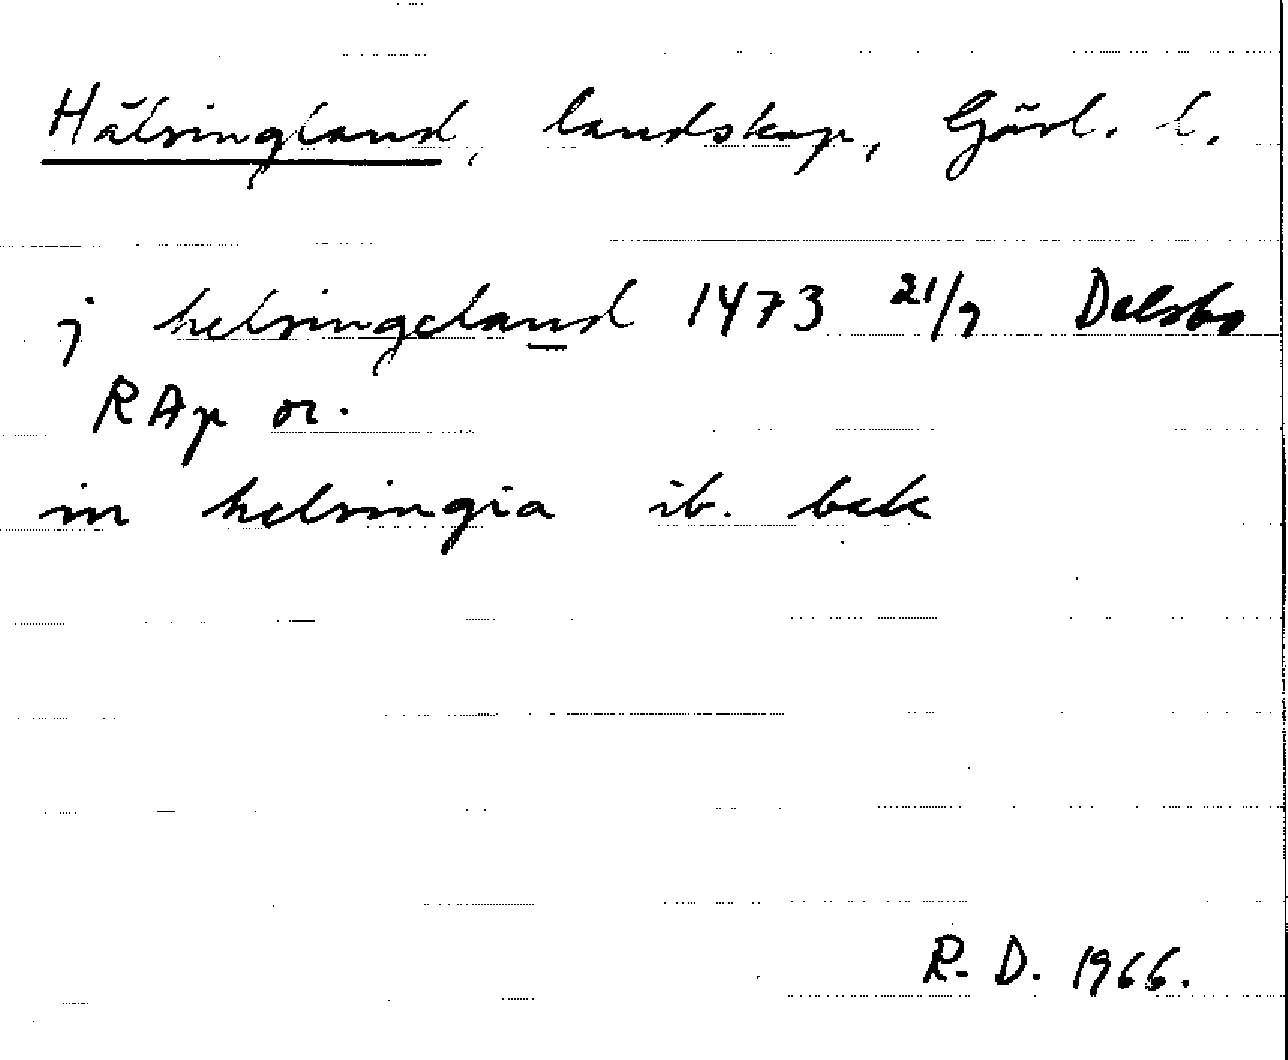 Hälsingland, landskap, Gävl. l.
j helsingeland 1473 21/9 Delsbo
RAp or.
in helsingia ib. bak
R. D. 1966.